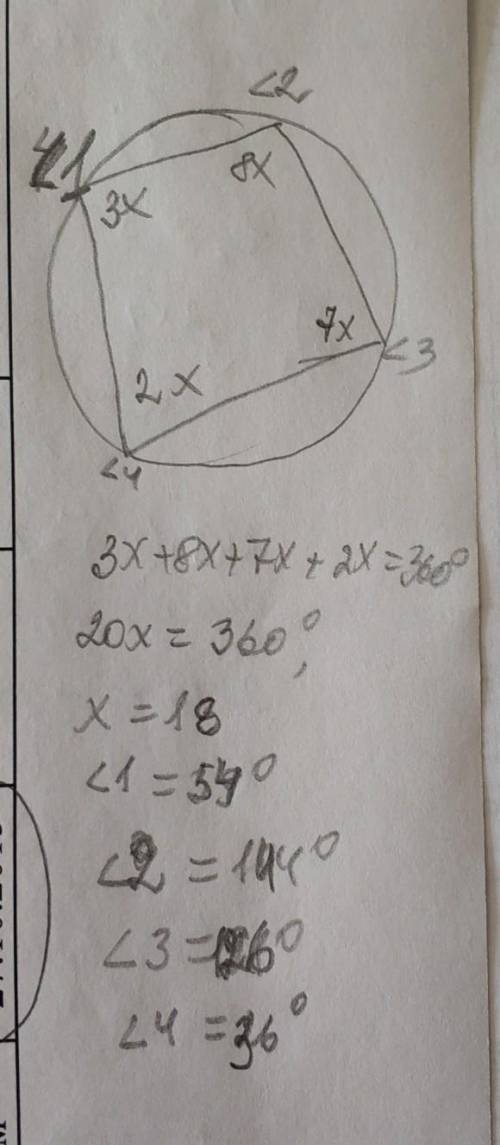 ∠2
∠1
3x
8x
7x
∠3
2x
∠4
3x+8x+7x+2x=360°
20x = 360°,
x = 18
∠1 = 54°
∠2 = 144°
∠3 = 126°
∠4 = 36°